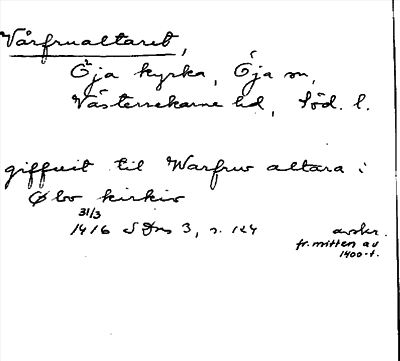 Vårfrualtaret,
Öja kyrka, Öja sn,
Västerrekarne hd, Söd. l.
giffuit til Warfrw altara i
Øbo kirkio
31/3
1416 SDns 3, s. 124
avskr.
fr. mitten av
1400-t.